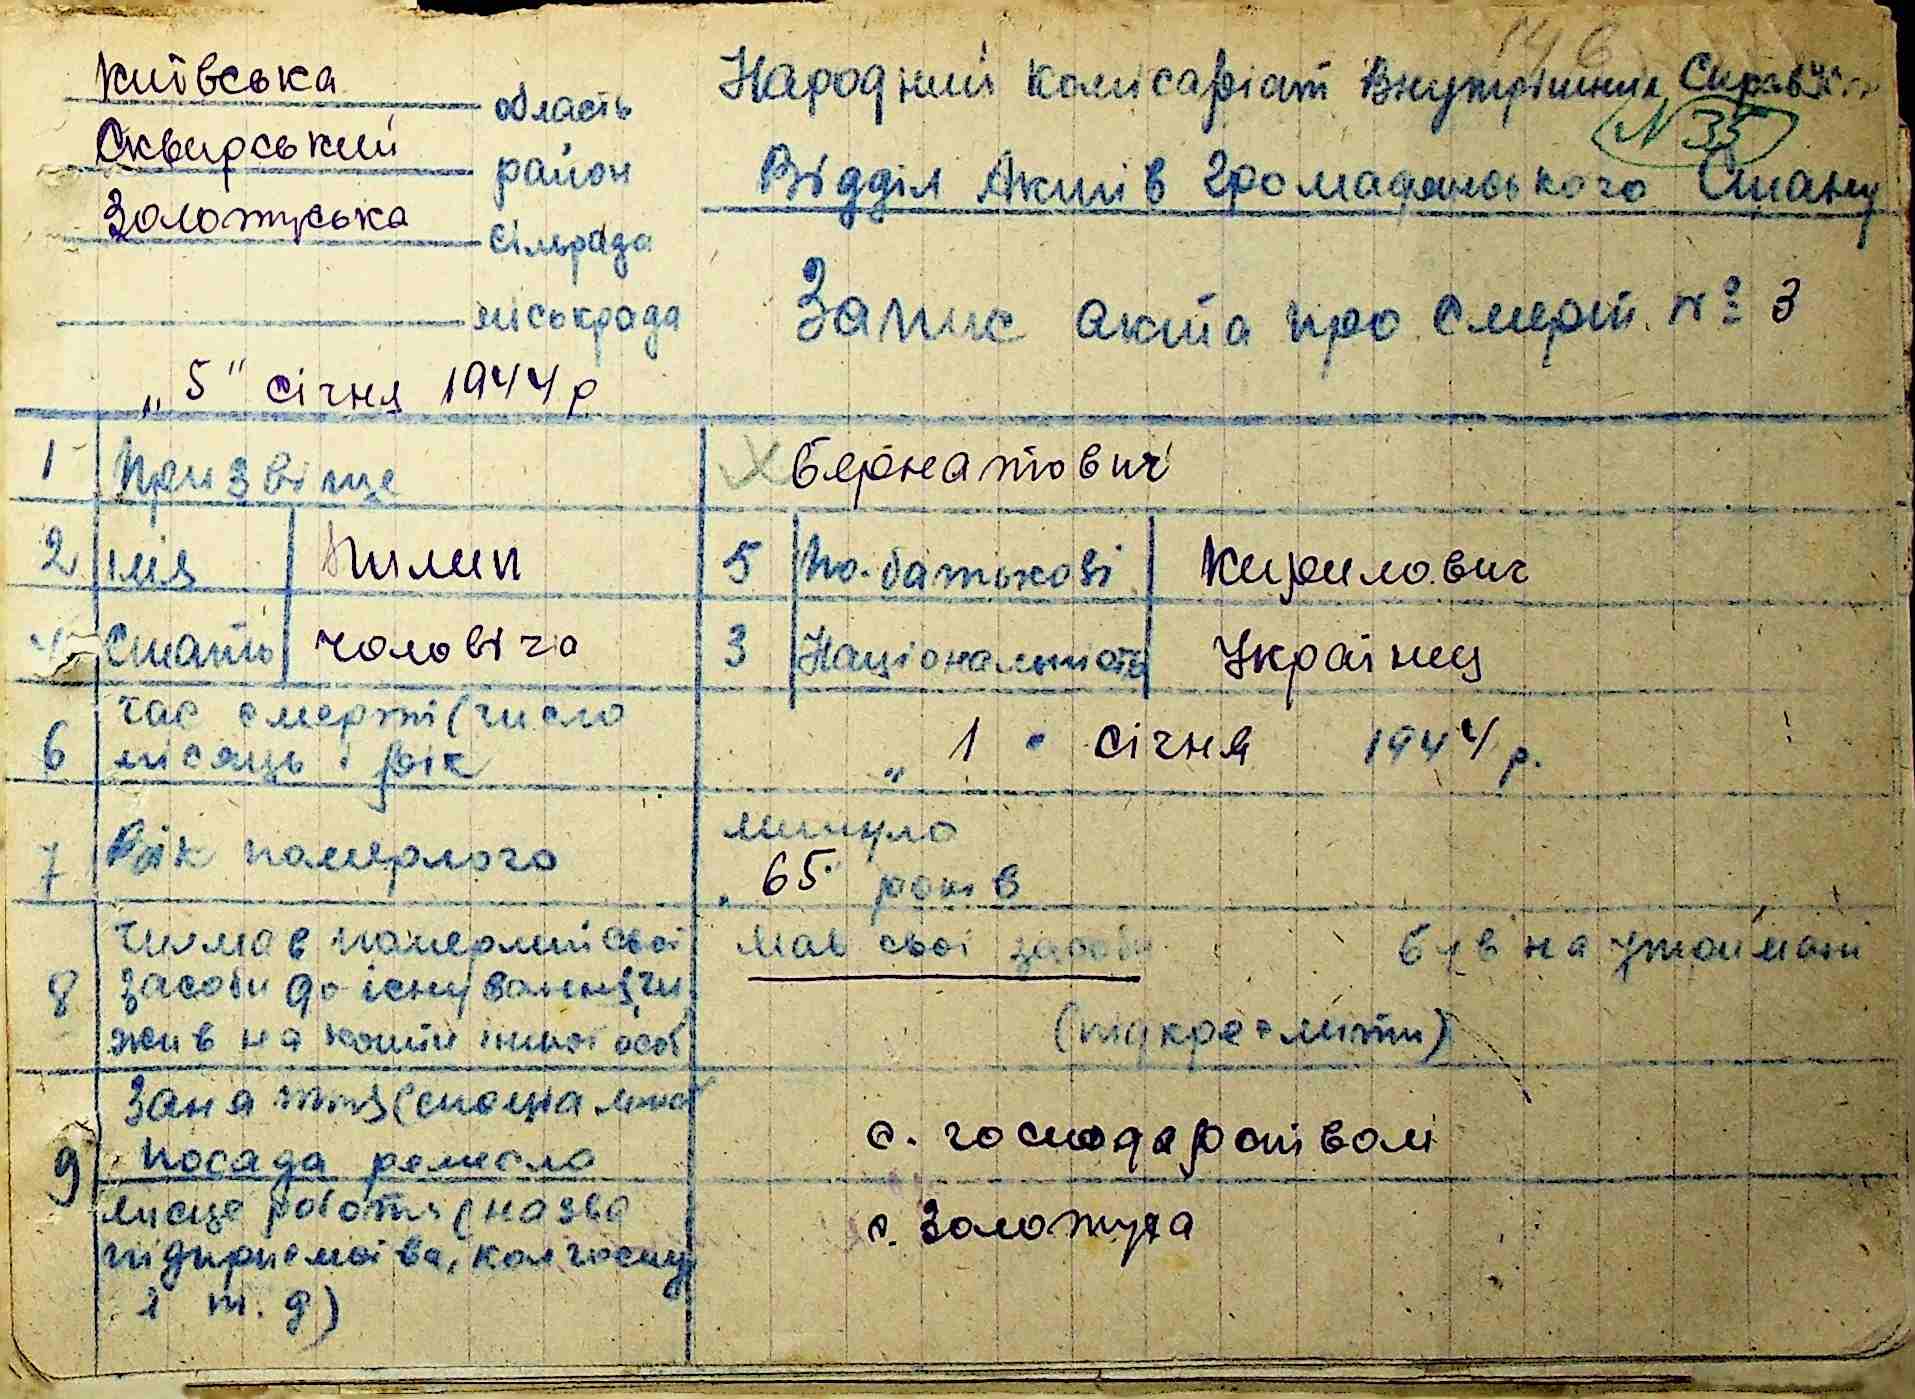 146
Київська область
Сквирський район
Золотуська сільрада
міськрада
Народний Комісаріат Внутрішних Справ
№ 35
Відділ Актів Громадянського Стану
Запис акта про смерть № 3
„5" січня 1944 р
1 Призвіще Бернатович
2 імя Пилип 5 По-батькові Кирилович
4 Стать чоловіча 3 Національність Українец
6 Час смерті (число місяць і рік „1" січня 1944 р.
7 Вік померлого минуло 65 років
8 Чи мав померлий свої засоби до існування чи жив на кошти іншої особ
мав свої засоби був на утримані
(підкреслити)
9 Заняття (спеціальност посада ремесло с. господарстволі
місце роботи (назва підприємства, колгоспу і т. д) с. Золотуха